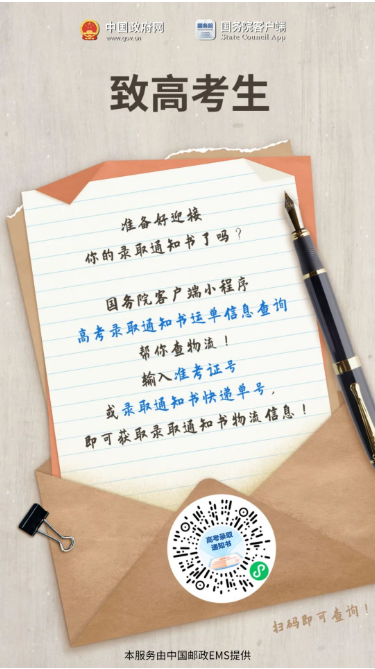 中国政府网
www.gov.cn
国务院
国务院客户端
State Council App
致高考生
准备好迎接
你的录取通知书了吗？
国务院客户端小程序
高考录取通知书运单信息查询
帮你查物流！
输入准考证号
或录取通知书快递单号，
即可获取录取通知书物流信息！
高考录取
通知书
扫码即可查询！
本服务由中国邮政EMS提供